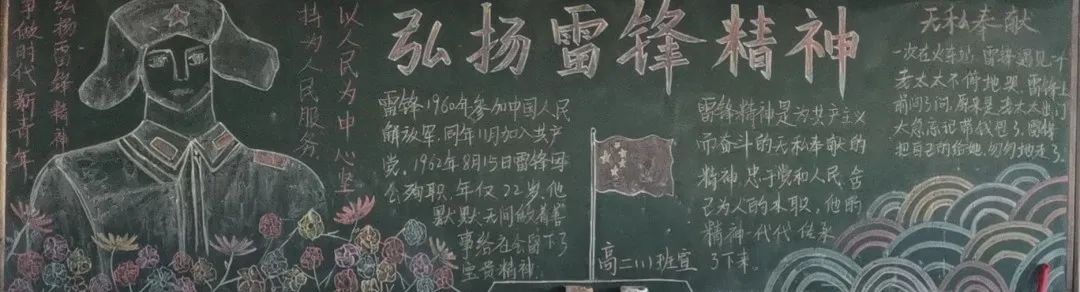 弘扬雷锋精神
争做时代新青年
以人民为中心坚
持为人民服务
弘扬雷锋精神
雷锋1960年参加中国人民
解放军,同年11月加入共产
党。1962年8月15日雷锋因
公殉职,年仅22岁,他
默默无闻的做着善
事给社会留下了
宝贵精神.
高二(1)班宣
雷锋精神是为共产主义
而奋斗的无私奉献的
精神,忠于党和人民,舍
己为人的本职,他的
精神一代代传承
了下来。
无私奉献
一次在火车站,雷锋遇见一个
老太太不停地哭,雷锋上
前问了问,原来是老太太出门
太急忘记带钱包了,雷锋
把自己的给她,匆匆地走了.